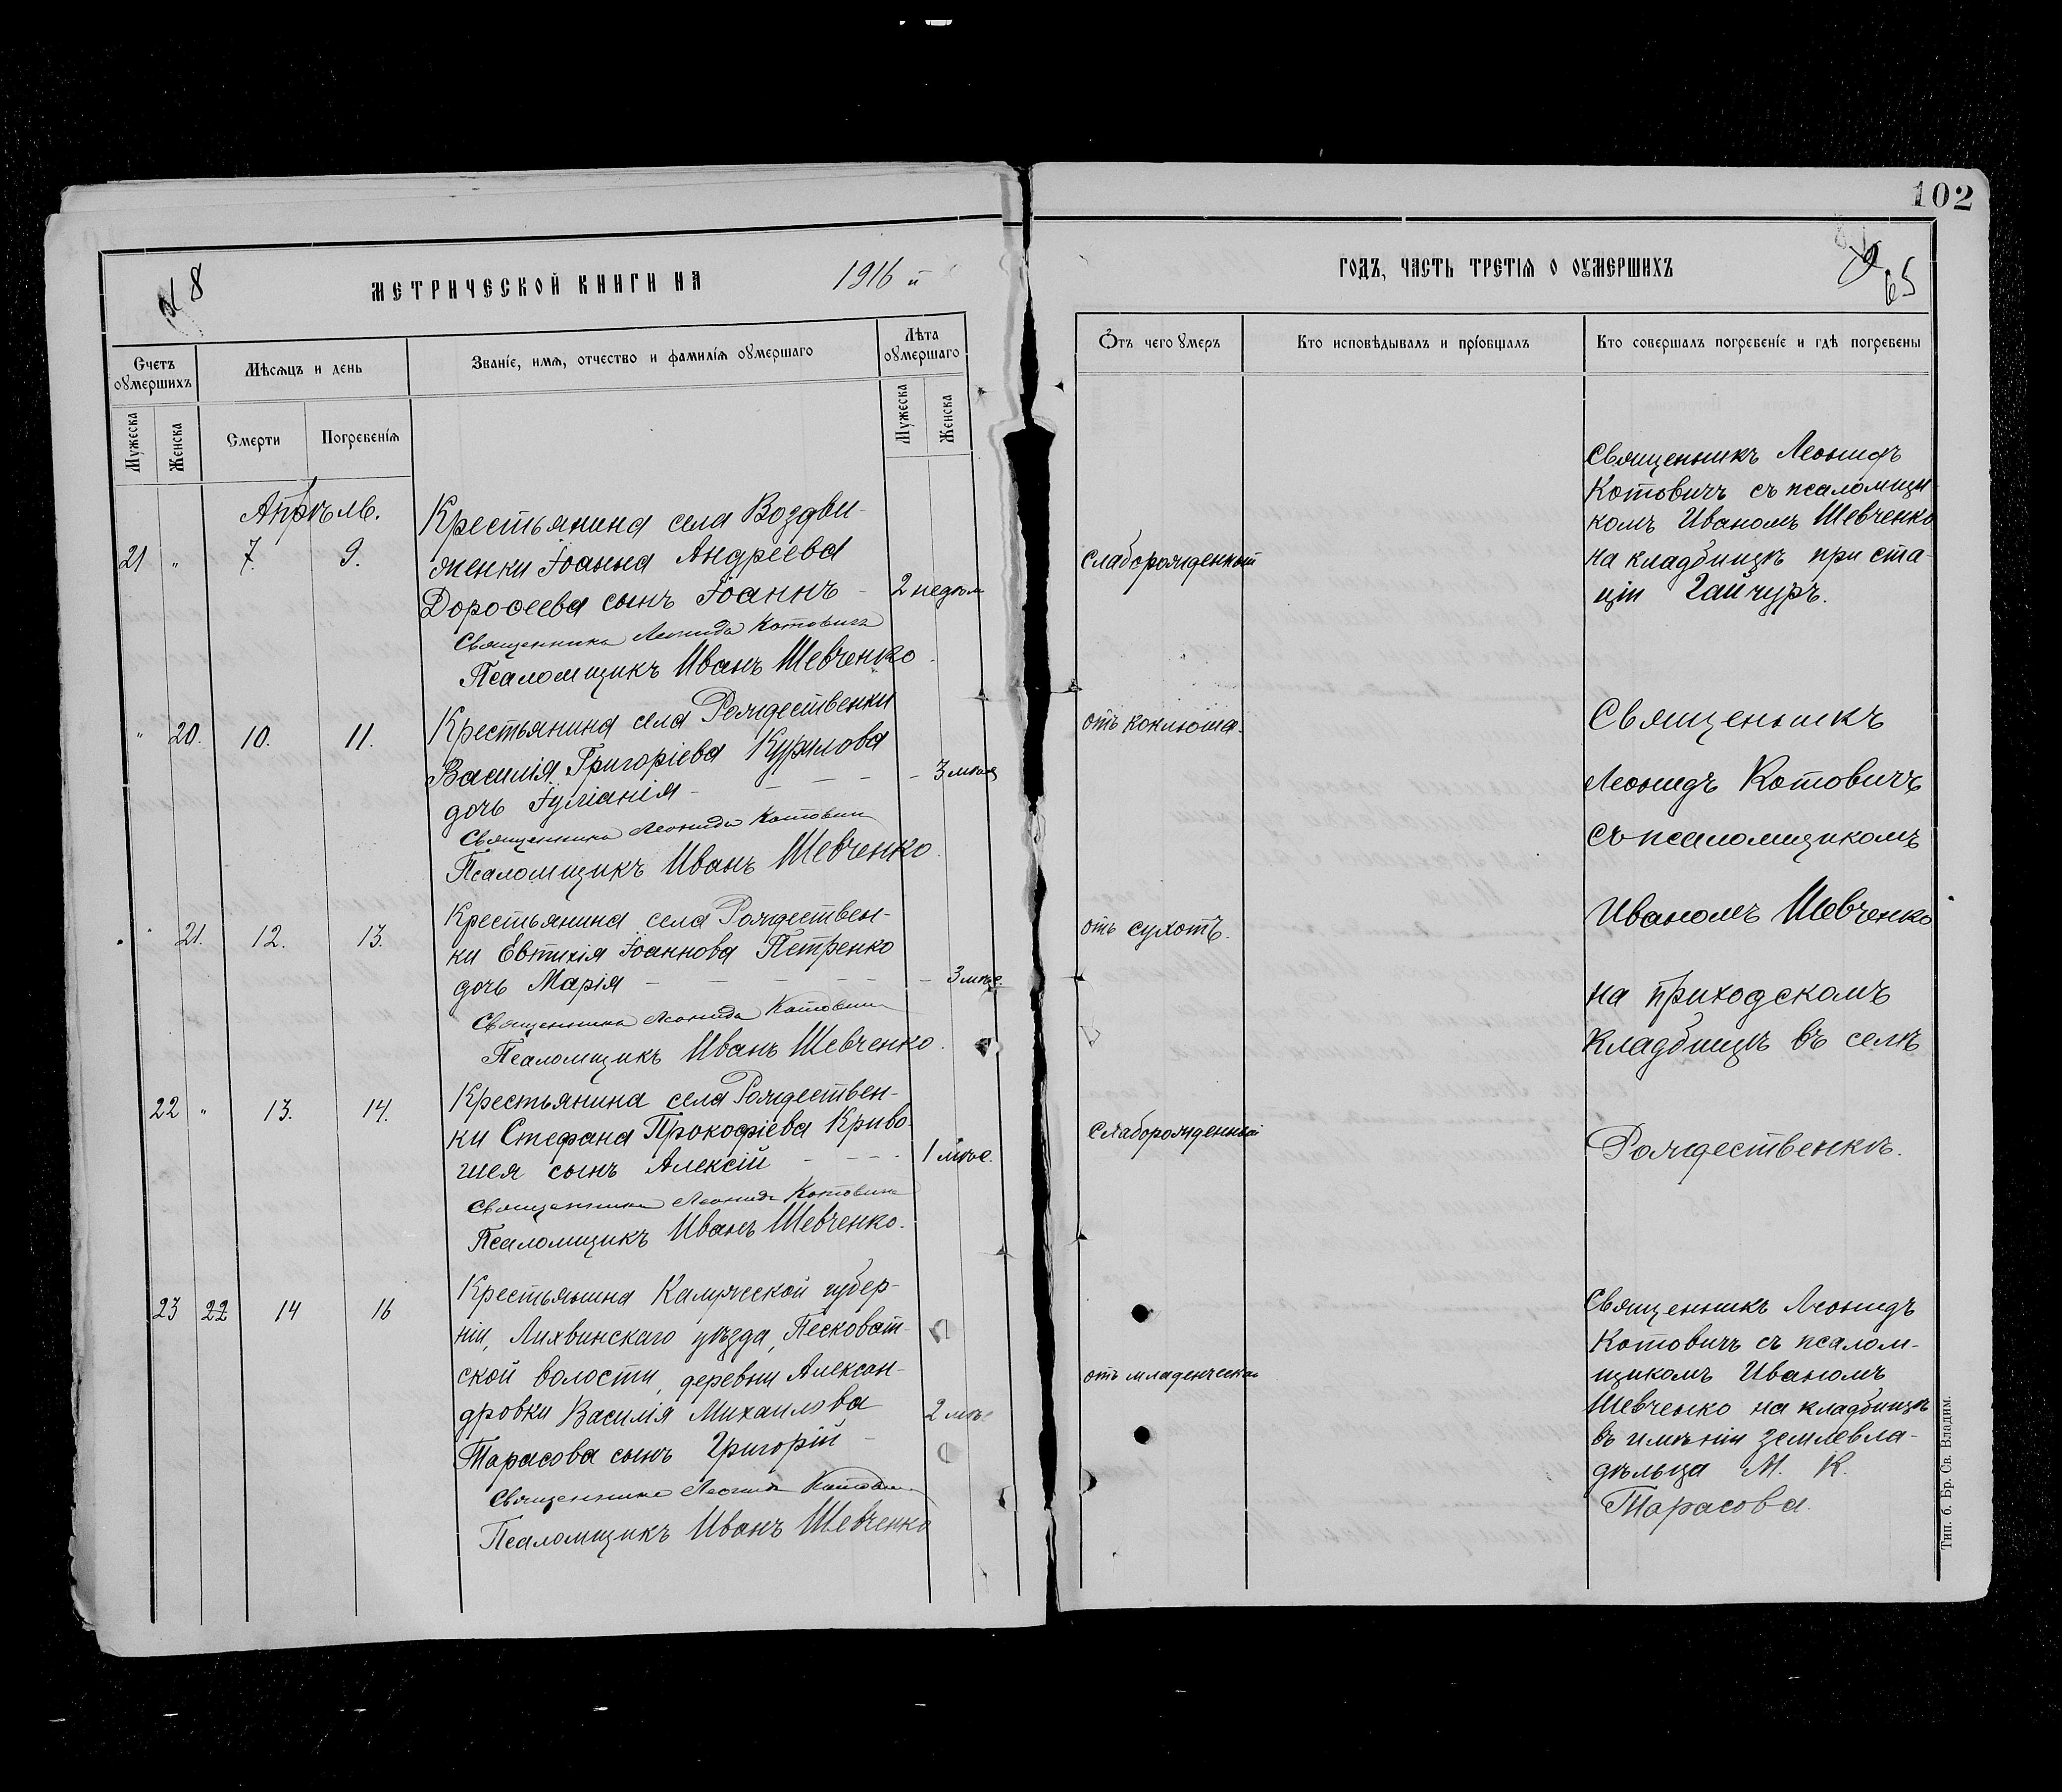 102
№ 8
МЕТРИЧЕСКОЙ КНИГИ НА 1916 й
ГОДЪ, ЧАСТЬ ТРЕТІЯ О ОУМЕРШИХЪ
65
Счетъ оумершихъ
Мѣсяцъ и день
Званіе, имя, отчество и фамилія оумершаго
Лѣта оумершаго
Отъ чего умеръ
Кто исповѣдывалъ и пріобщалъ
Кто совершалъ погребеніе и гдѣ погребены
Мужеска
Женска
Смерти
Погребенія
Мужеска
Женска
Апрѣль.
21 " 7. 9.
Крестьянина села Воздви-
женки Іоанна Андреева
Дороѳеева сынъ Іоаннъ - 2 недѣл
Священникъ Леонидъ Котовичъ
Псаломщикъ Иванъ Шевченко.
слаборожденный
Священникъ Леонидъ
Котовичъ съ псаломщи-
комъ Иваномъ Шевченко
на кладбищѣ при ста-
ціи Гайчуръ.
" 20. 10. 11.
Крестьянина села Рождественки
Василія Григоріева Курилова
дочь Іуліанія - - - - 3 мѣся
Священникъ Леонидъ Котовичъ
Псаломщикъ Иванъ Шевченко.
отъ коклюша.
Священникъ
Леонидъ Котовичъ
съ псаломщикомъ
Иваномъ Шевченко
на приходскомъ
кладбищѣ въ селѣ
Рождественкѣ.
" 21. 12. 13.
Крестьянина села Рождествен-
ки Евтихія Іоаннова Петренко
дочь Марія - - - - - 3 мѣс.
Священникъ Леонидъ Котовичъ
Псаломщикъ Иванъ Шевченко.
отъ сухотъ.
22 " 13. 14.
Крестьянина села Рождествен-
ки Стефана Прокофіева Криво-
шея сынъ Алексій - - - 1 мѣс.
Священникъ Леонидъ Котовичъ
Псаломщикъ Иванъ Шевченко.
слаборожденный
23 22 14 16
Крестьянина Калужской губер-
ніи, Лихвинскаго уѣзда, Песковат-
ской волости, деревни Алексан-
дровки Василія Михаилова 2 мѣс
Тарасова сынъ Григорій -
Священникъ Леонидъ Котовичъ
Псаломщикъ Иванъ Шевченко
отъ младенческа
Священникъ Леонидъ
Котовичъ съ псалом-
щикомъ Иваномъ
Шевченко на кладбищѣ
въ имѣніи землевла-
дѣльца М. К.
Тарасова.
Тип. б. Бр. Св. Владим.